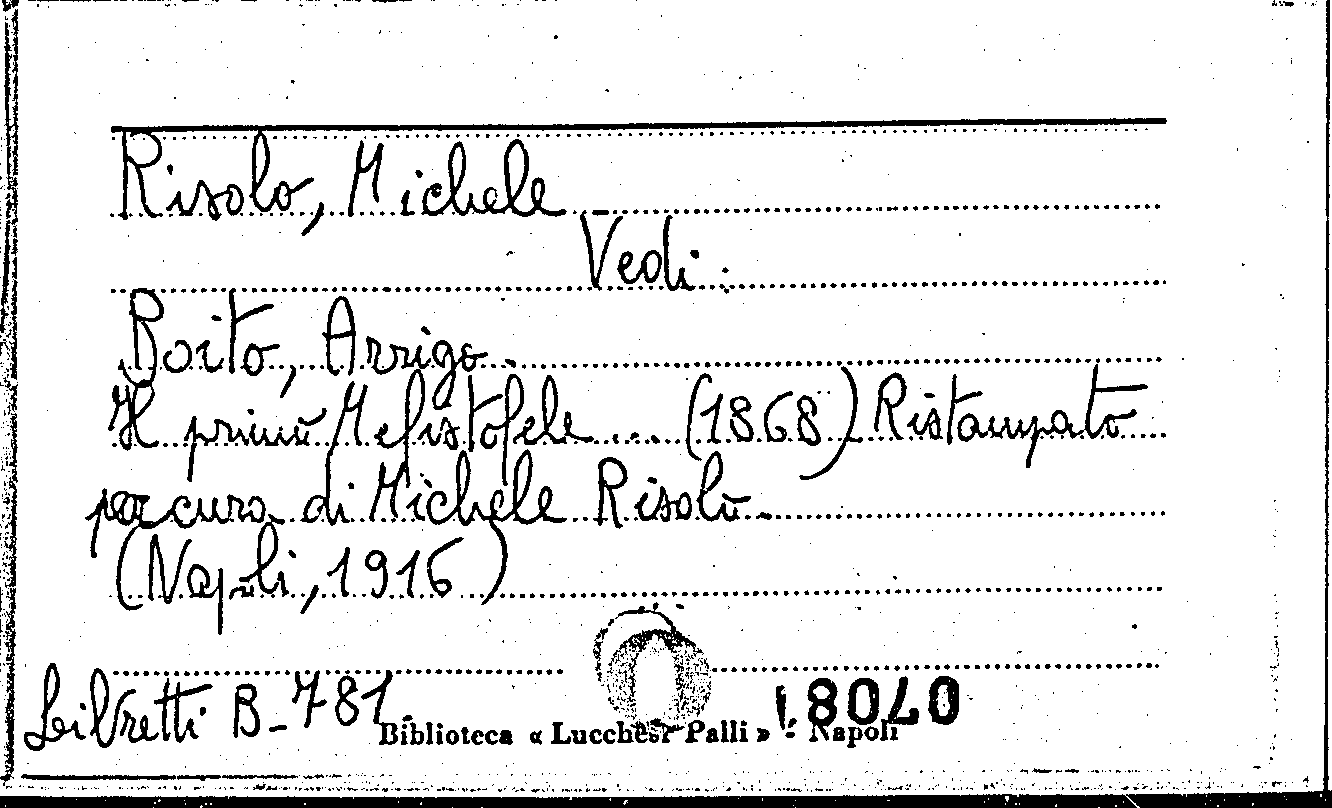 Risolo, Michele
Vedi:
Boito, Arrigo.
Il primo Mefistofele... (1868) Ristampato
per cura di Michele Risolo.
(Napoli, 1916)
Libretti B-781
Biblioteca « Lucchesi Palli » - Napoli